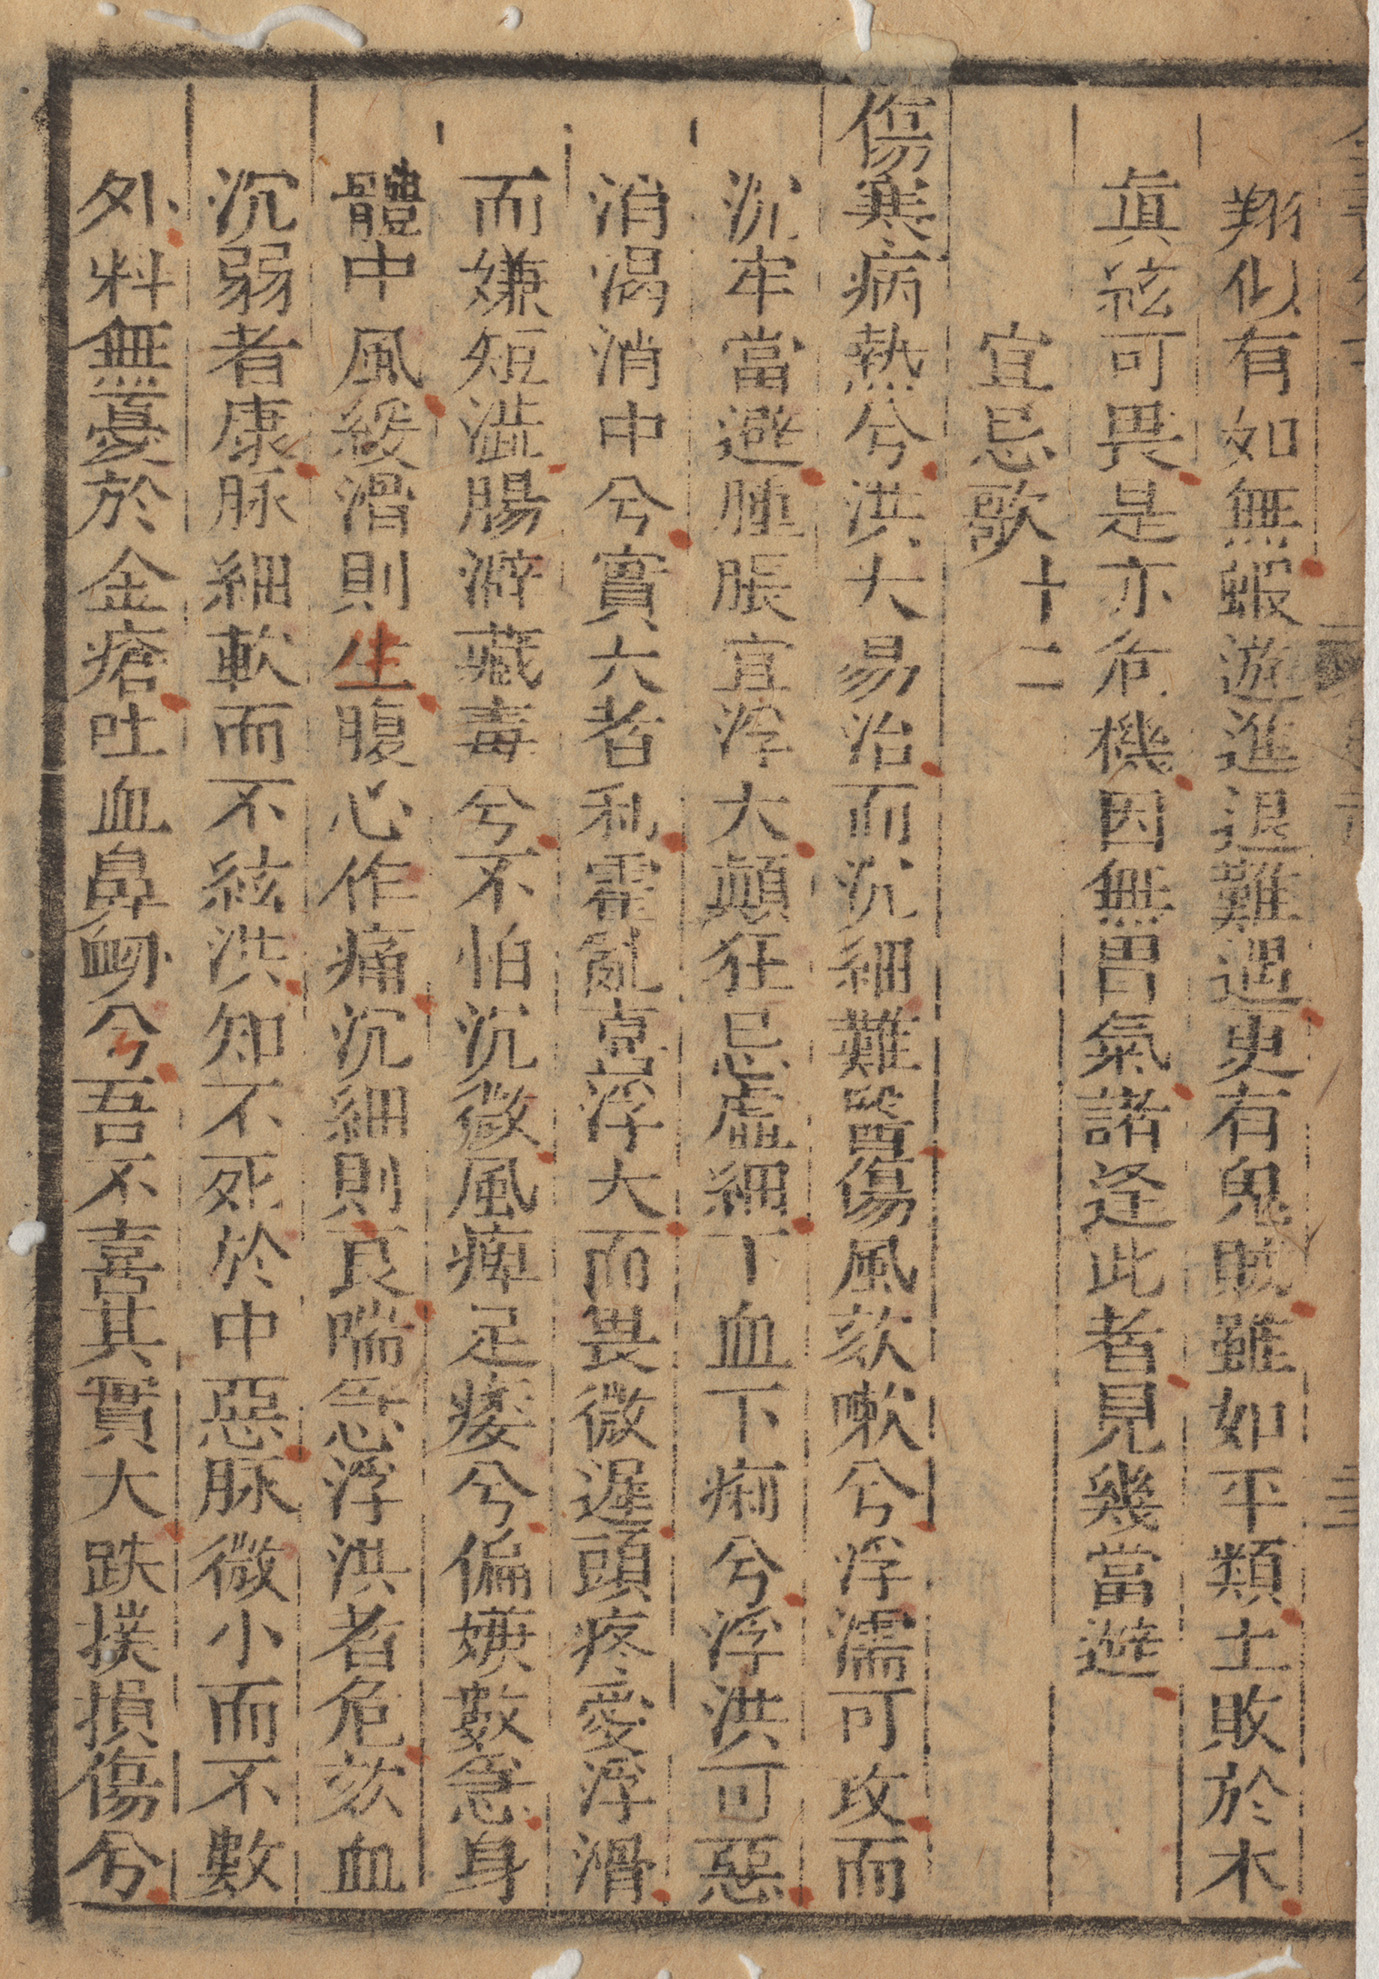 翔似有如無蝦遊進退難遇更有鬼賊雖如平類土敗於木
真絃可畏是亦危機因無胃氣諸逢此者見幾當避
宜忌歌十二
傷寒病熱兮洪大易治而沉細難醫傷風欬嗽兮浮濡可攻而
沉牢當避腫脹宜浮大顛狂忌虛細下血下痢兮浮洪可惡
消渴消中兮實大者利霍亂喜浮大而畏微遲頭疼愛浮滑
而嫌短澁腸澼藏毒兮不怕沉微風痺足痿兮偏嫌數急身
體中風緩滑則生腹心作痛沉細則良喘急浮洪者危欬血
沉弱者康脉細軟而不絃洪知不死於中惡脉微小而不數
外料無憂於金瘡吐血鼻衂兮吾不喜其實大跌撲損傷兮